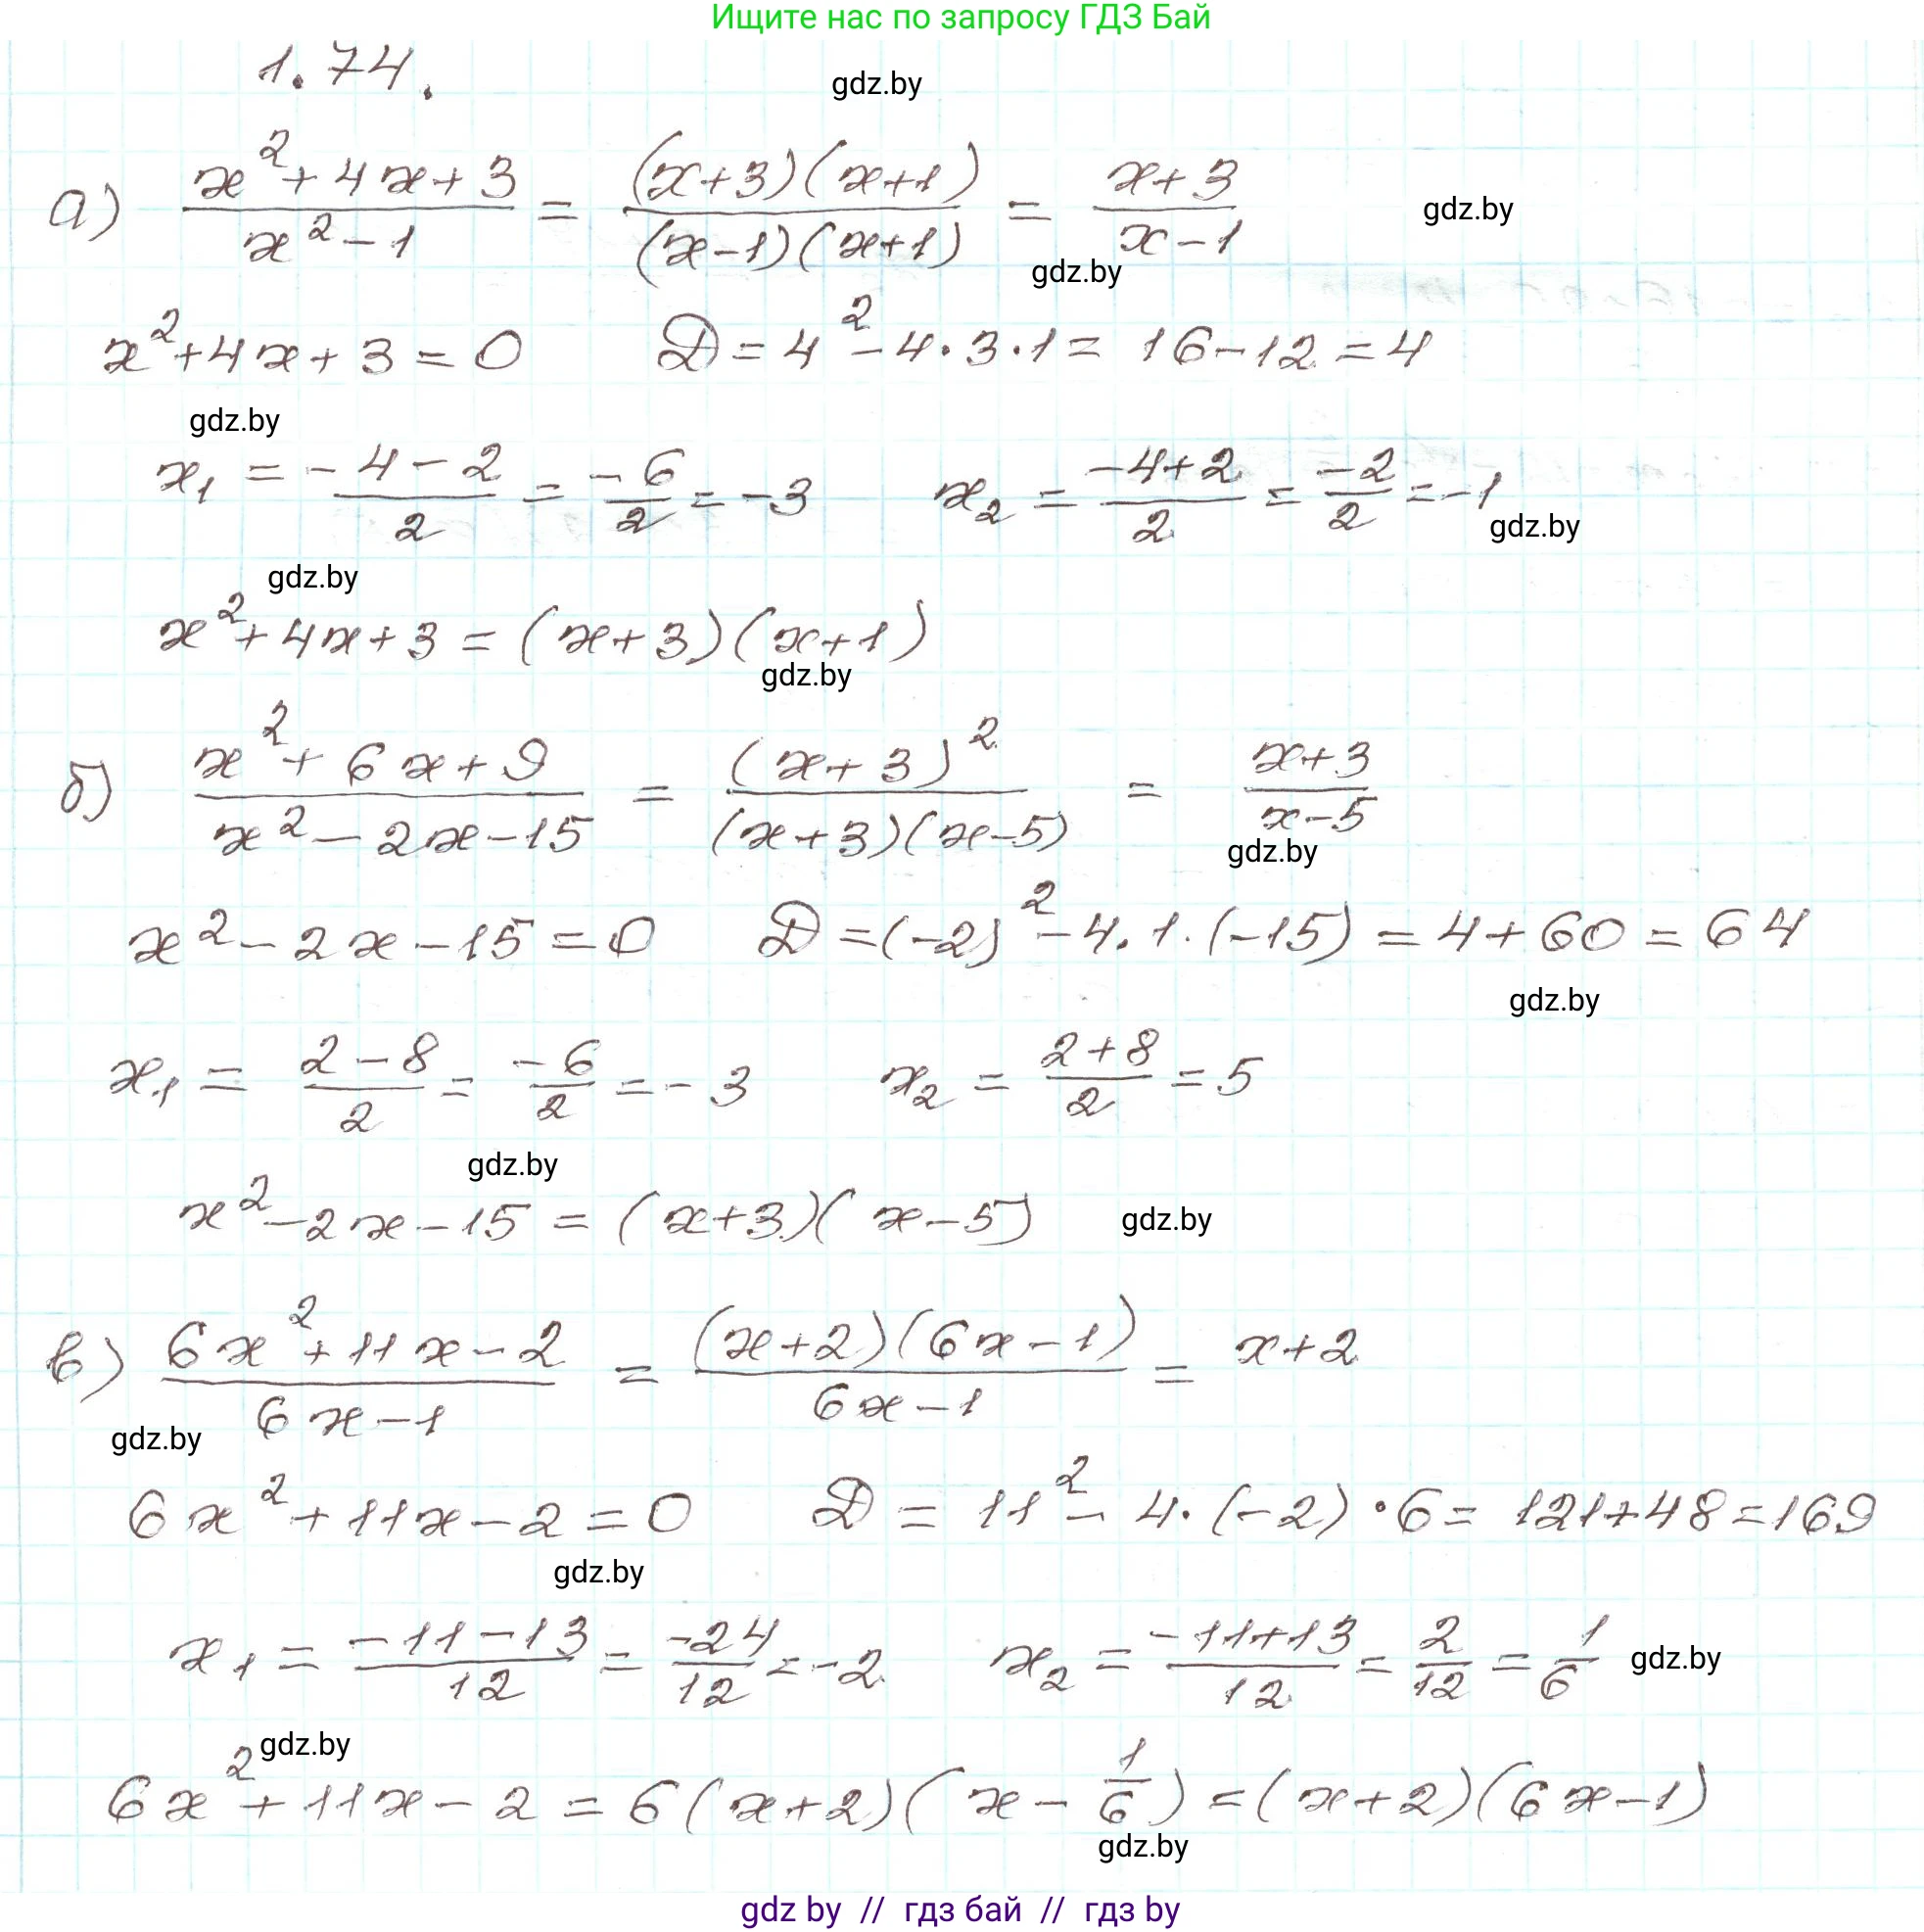 Ищите нас по запросу ГДЗ Бай
1.74.
gdz.by
а) (x²+4x+3)/(x²-1) = ((x+3)(x+1))/((x-1)(x+1)) = (x+3)/(x-1)
gdz.by
gdz.by
x²+4x+3=0 D=4²-4·3·1=16-12=4
gdz.by
x₁ = (-4-2)/2 = (-6)/2 = -3 x₂ = (-4+2)/2 = (-2)/2 = -1
gdz.by
gdz.by
x²+4x+3=(x+3)(x+1)
gdz.by
б) (x²+6x+9)/(x²-2x-15) = (x+3)²/((x+3)(x-5)) = (x+3)/(x-5)
gdz.by
x²-2x-15=0 D=(-2)²-4·1·(-15)=4+60=64
gdz.by
x₁ = (2-8)/2 = (-6)/2 = -3 x₂ = (2+8)/2 = 5
gdz.by
x²-2x-15=(x+3)(x-5)
gdz.by
в) (6x²+11x-2)/(6x-1) = ((x+2)(6x-1))/(6x-1) = x+2
gdz.by
6x²+11x-2=0 D=11²-4·(-2)·6=121+48=169
gdz.by
x₁ = (-11-13)/12 = (-24)/12 = -2 x₂ = (-11+13)/12 = 2/12 = 1/6
gdz.by
gdz.by
6x²+11x-2=6(x+2)(x-1/6)=(x+2)(6x-1)
gdz.by
gdz by // гдз бай // гдз by